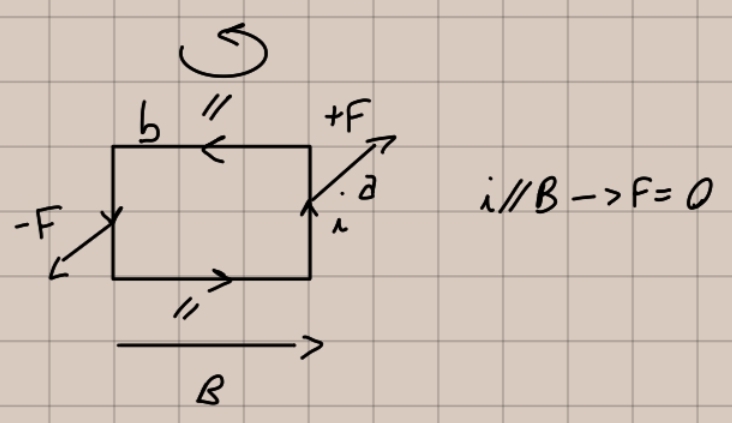 //
b
+F
a
i
-F
i//B -> F = 0
//
B